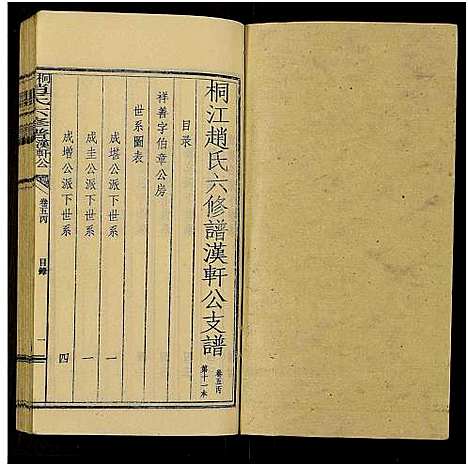 桐江趙氏六修譜漢軒公支譜 卷五丙 第十一本
目录
祥善字伯章公房
世系圖表
成增公派下世系 一
成圭公派下世系 一
成堦公派下世系 四
桐江趙氏六修譜漢軒公支譜 卷五丙 目錄 一